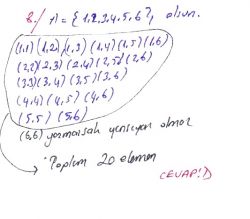 8./ A = {1,2,3,4,5,6}, olsun.
(1,1) (1,2) (1,3) (1,4) (1,5) (1,6)
(2,2) (2,3) (2,4) (2,5) (2,6)
(3,3) (3,4) (3,5) (3,6)
(4,4) (4,5) (4,6)
(5,5) (5,6)
(6,6) yazmazsak yansıyan olmaz
* Toplam 20 eleman
CEVAP: D